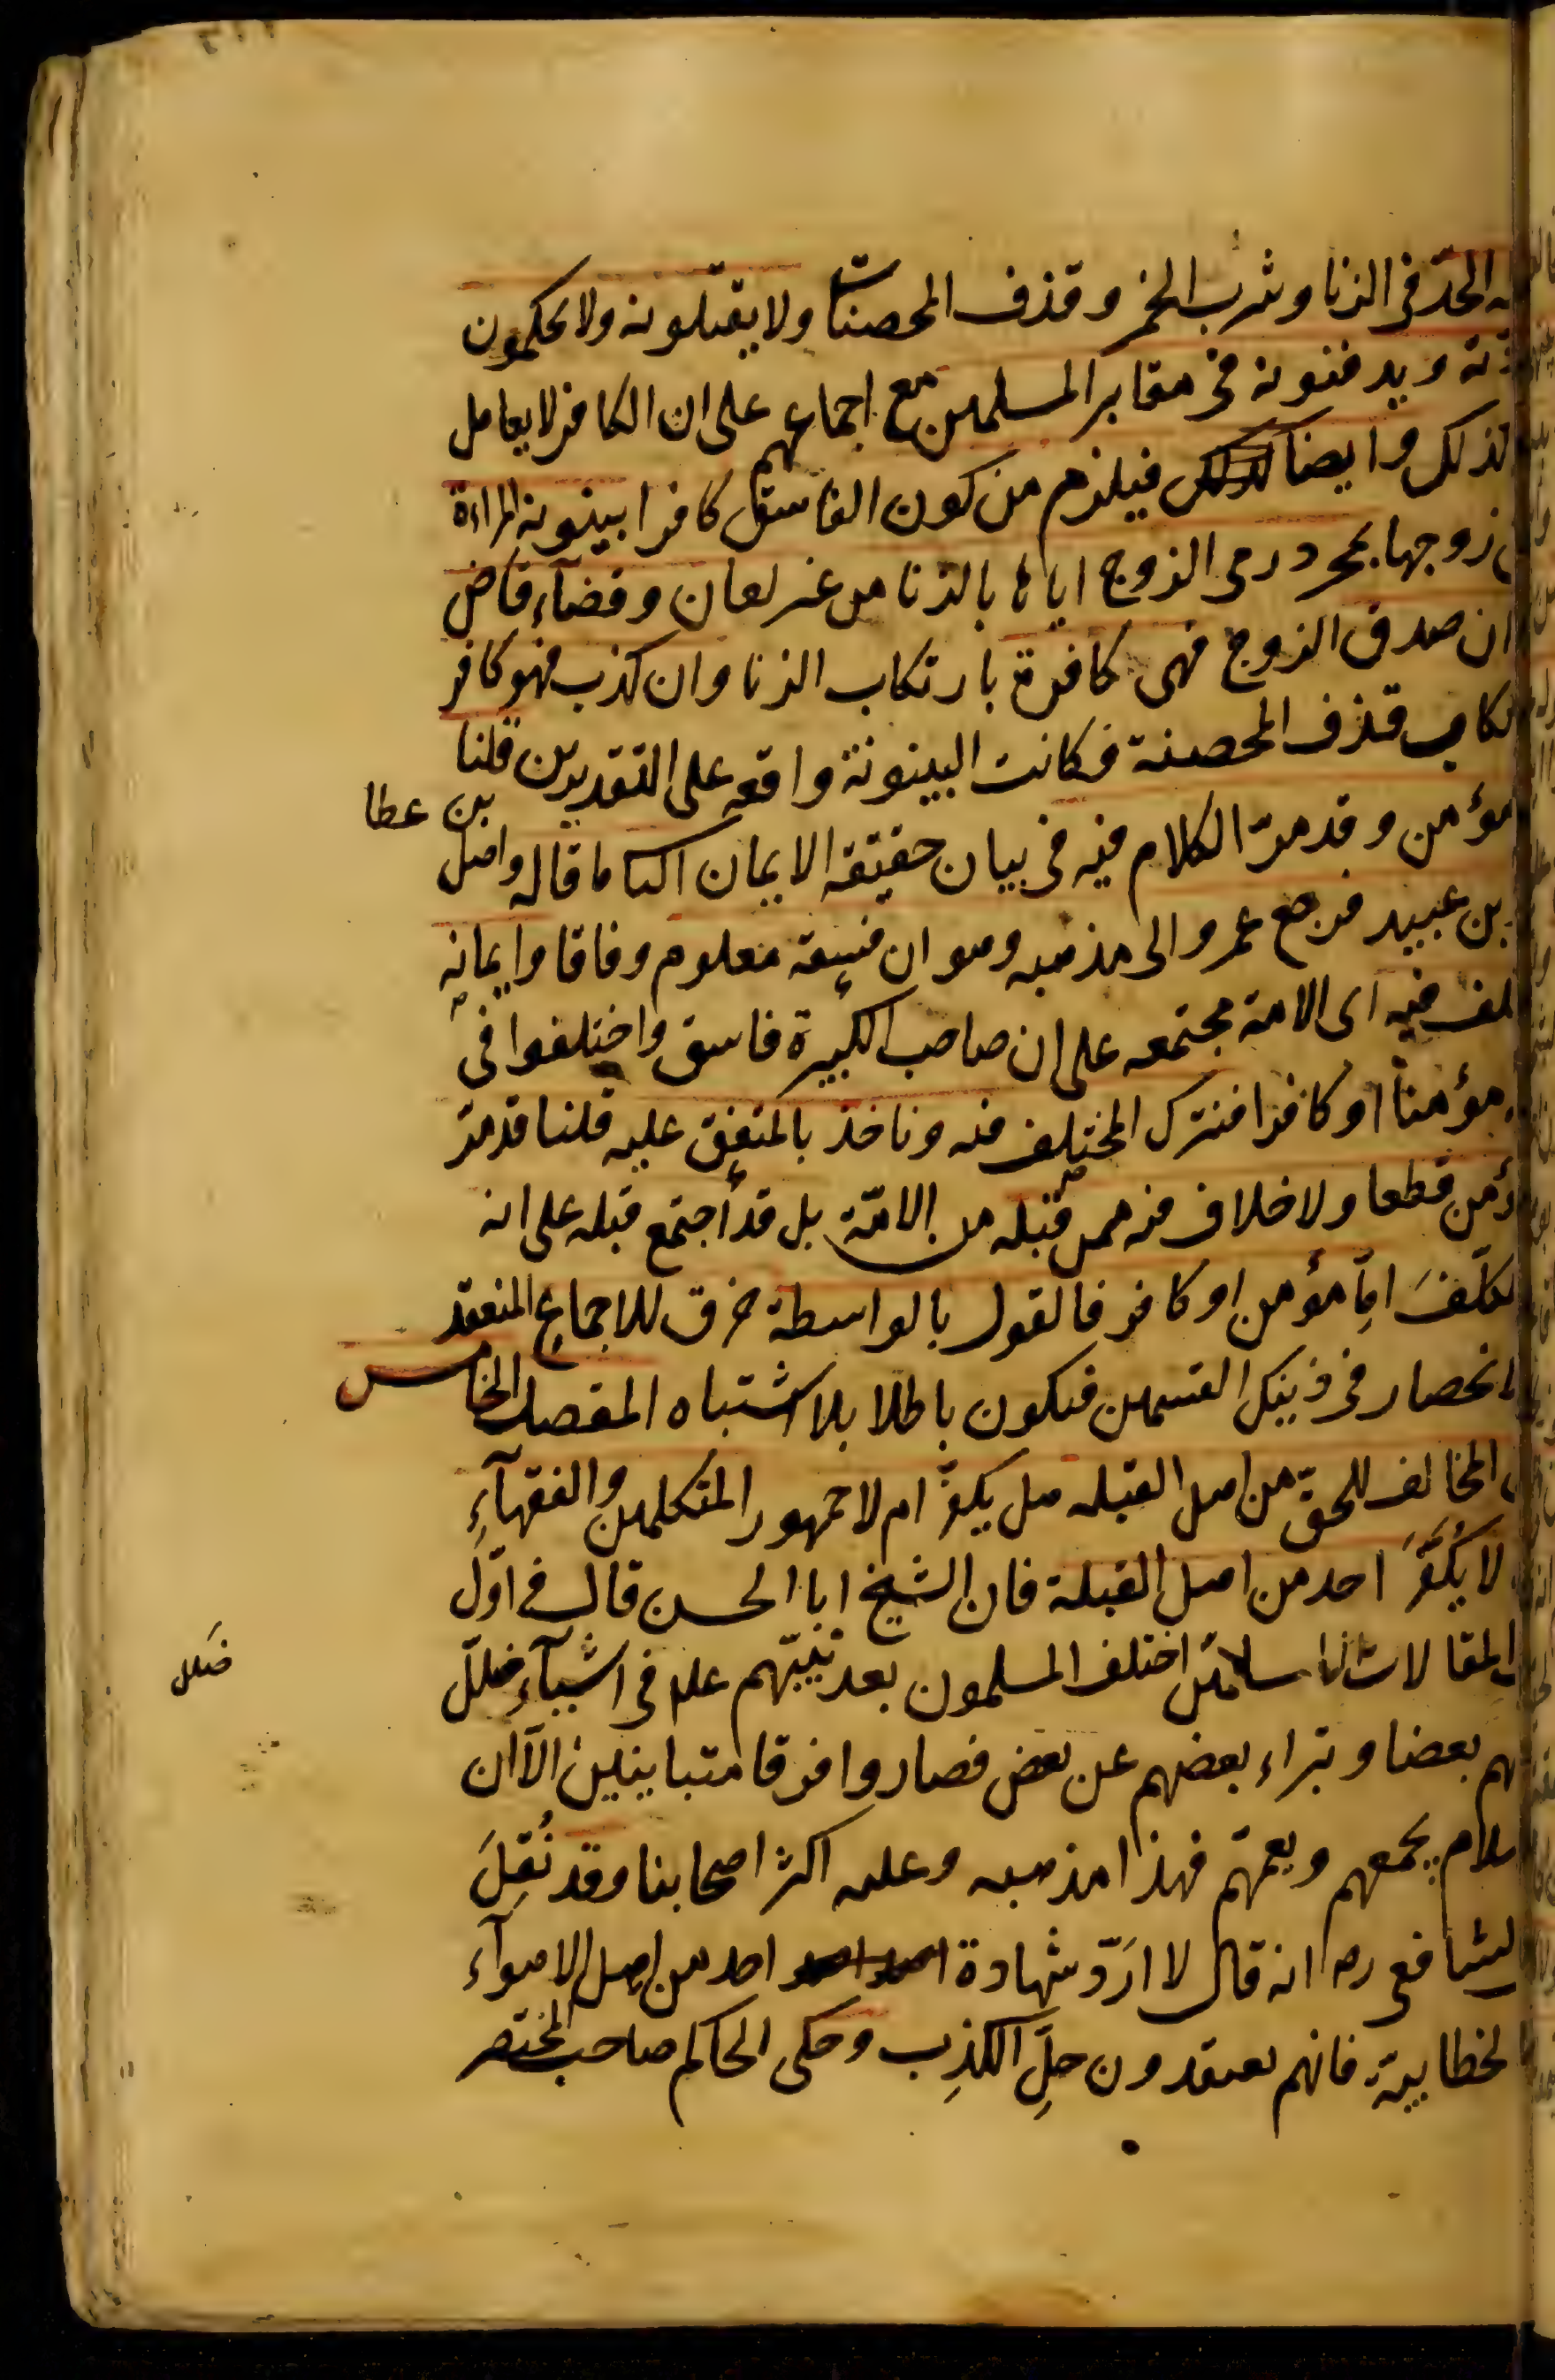 الحدّ فى الزنا وشرب الخمر وقذف المحصنات ولا يقتلونه ولا يحكمون
ويدفنونه فى مقابر المسلمين مع اجماعهم على ان الكافر لا يعامل
لذلك وايضا فيلزم من كون الفاسق كافرا بينونة المراءة
زوجها بمجرد رمى الزوج اياها بالزنا من غير لعان وقضآء قاض
ان صدق الزوج فهى كافرة بارتكاب الزنا وان كذب فهو كافر
قذف المحصنة فكانت البينونة واقعه على التقديرين قلنا
مؤمن وقد مرّ الكلام فيه فى بيان حقيقه الايمان ما قاله واصل بن عطا
بن عبيد فرجع عمرو الى مذهبه وهو ان فسقه معلوم وفاقا وايمانه
فيه اى الامة مجتمعه على ان صاحب الكبيرة فاسق واختلفوا فى
مؤمناً او كافرا فنترك المختلف فيه وناخذ بالمتفق عليه قلنا قد مرّ
قطعا ولا خلاف فيه ممن قبله من الامّة بل قد أجتمع قبله على انه
امّا مؤمن او كافر فالقول بالواسطة خرق للاجماع المنعقد
انحصار فى ذينك القسمين فيكون باطلا بلا اشتباه المقصد الخامس
المخالف للحقّ من اهل القبله هل يكفّر ام لا جمهور المتكلمين والفقهآءِ
لا يُكفَّرَ احد من اهل القبلة فان الشيخ ابا الحسن قال فى اوّل
المقالات الاسلاميّن اختلف المسلمون بعد نبيّهم علم فى اشيآء ضلّل
ضلل
بعضا وتبراء بعضهم عن بعض فصاروا فرقا متباينين الّا ان
يجمعهم ويعمّهم فهذا مذهبه وعليه اكثر اصحابنا وقد نُقِلَ
الشافعى رح انه قال لا اردّ شهادة احد من اهل الاهوآء
الخطابية فانهم يعتقدون حلِّ الكذِب وحكى الحاكم صاحب المختصر